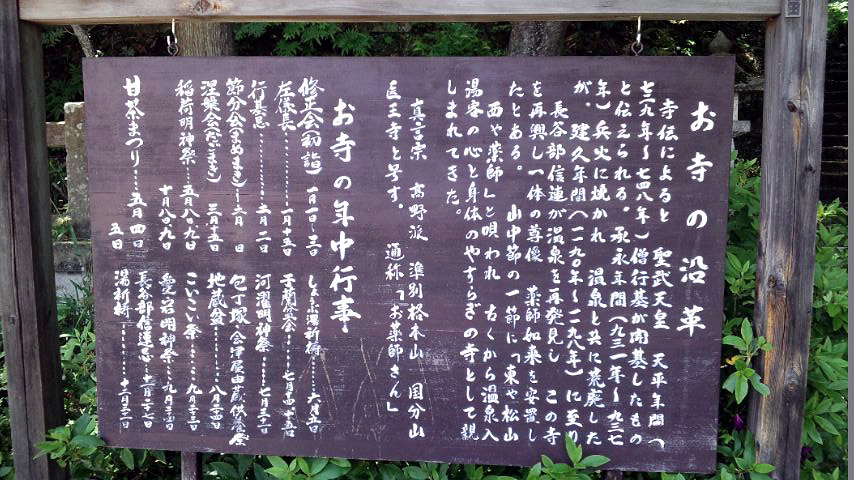 お寺の沿革
寺伝によると 聖武天皇 天平年間(
七二九年~七四八年) 僧行基が開基したもの
と伝えられる。承永年間(九三一年~九三七
年)兵火に焼かれ 温泉と共に荒廃した
が、建久年間(一一九〇年~一一九八年)に至り
長谷部信連が温泉を再発見し この寺
を再興し一体の尊像 薬師如来を安置し
たとある。 山中節の一節に「東や松山
西や薬師」と唄われ 古くから温泉入
湯客の心と身体のやすらぎの寺として親
しまれてきた。
真言宗 高野派 準別格本山 国分山
医王寺と号す。 通称「お薬師さん」
お寺の年中行事
修正会(初詣) 一月一日~三日
左儀長 一月十五日
行基忌 二月二日
節分会(まめまき) 二月 日
涅槃会(だんごまき) 三月十五日
稲荷明神祭 五月八日九日
十月八日九日
甘茶まつり 五月四日
五日
しょうぶ湯祈祷 六月五日
盂蘭盆会 七月十四十五日
河濯明神祭 七月三十日
包丁塚・会津屋由蔵供養祭
地蔵盆 八月二十四日
こいこい祭 九月二十三日
愛宕明神祭 九月二十四日
長谷部信連忌 十一月二十七日
湯祈祷 十二月三十一日